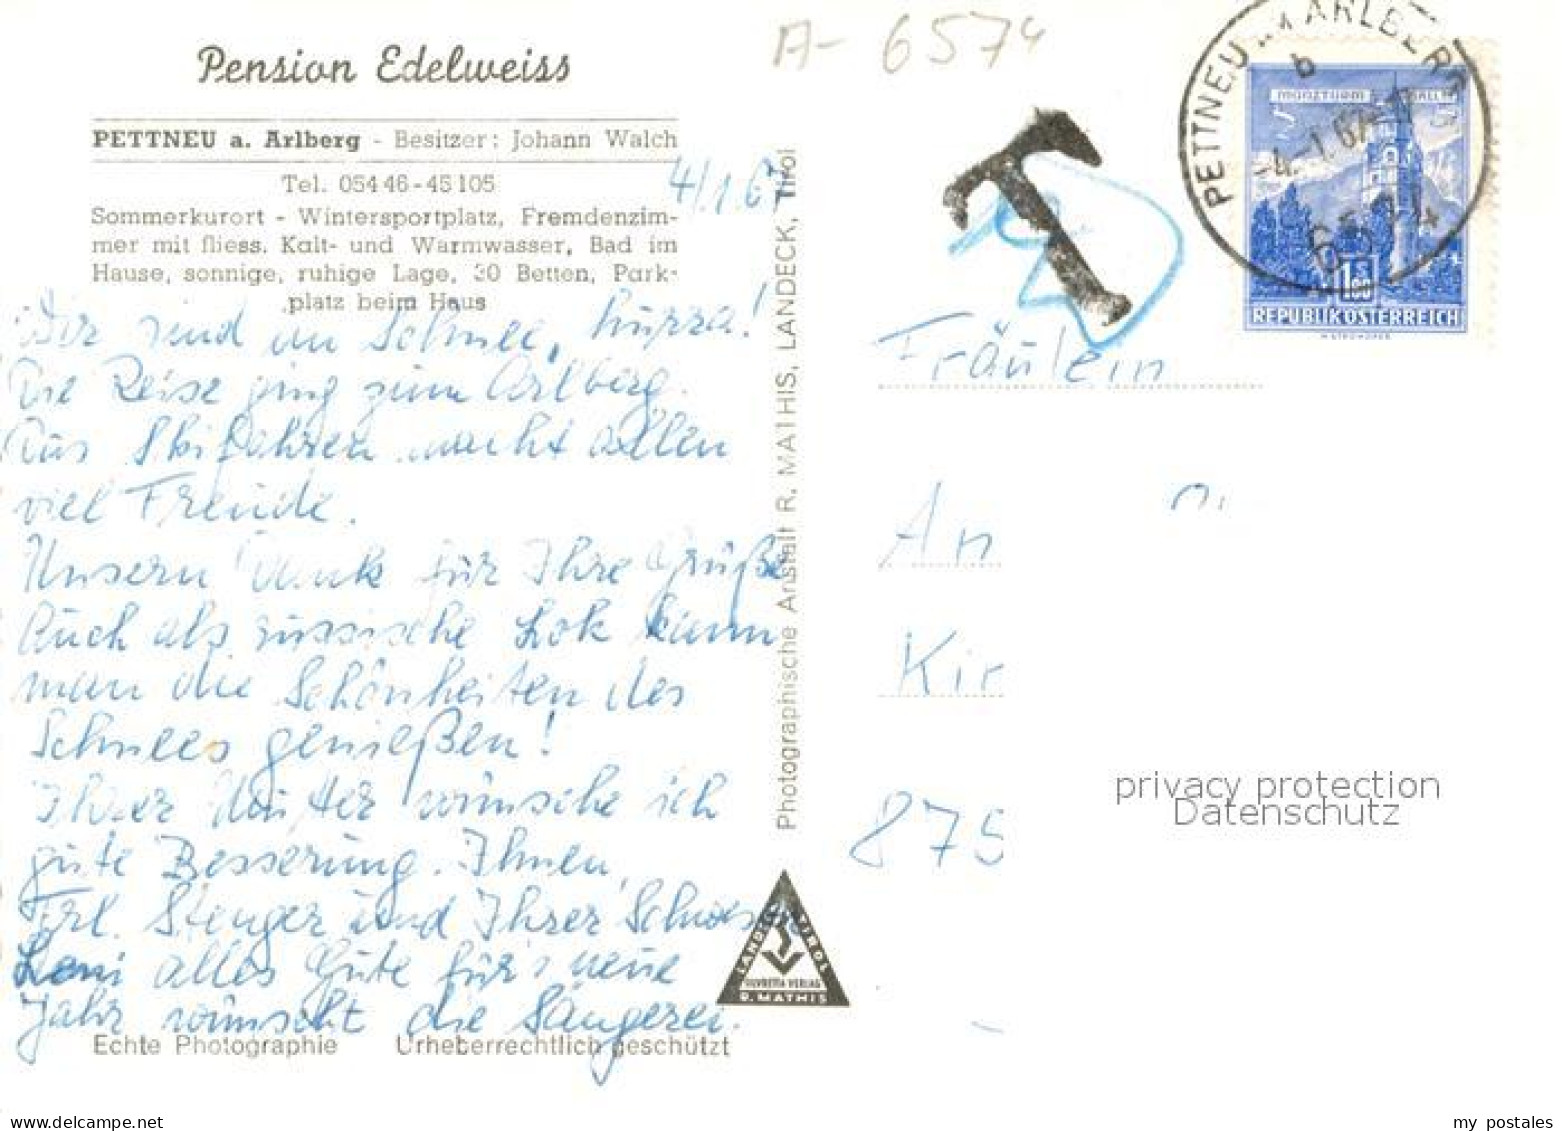 A-6574
Pension Edelweiss
PETTNEU a. Arlberg - Besitzer: Johann Walch
Tel. 05446-45105
4/1.67
Sommerkurort - Wintersportplatz, Fremdenzim-
mer mit fliess. Kalt- und Warmwasser, Bad im
Hause, sonnige, ruhige Lage, 30 Betten, Park-
platz beim Haus
Wir sind im Schnee, hurra!
Die Reise ging zum Arlberg.
Das Skifahren macht allen
viel Freude.
Unsern Dank für Ihre Grüße
Auch als russische Lok kann
man die Schönheiten des
Schnees genießen!
Ihrer wünsche ich
gute Besserung. Ihnen,
Frl. Stenger und Ihrer
Leni alles Gute für's neue
Jahr wünscht die Sängerei.
Echte Photographie Urheberrechtlich geschützt
Photographische Anstalt R. MATHIS, LANDECK, Tirol
LANDECK TIROL
SILVRETTA VERLAG
R. MATHIS
T
PETTNEU AM ARLBERG
b
-4.-1.67-
6574
MÜNZTURM HALL
1.50
S
REPUBLIK ÖSTERREICH
Fräulein
An
Kir
875
privacy protection
Datenschutz
my postales